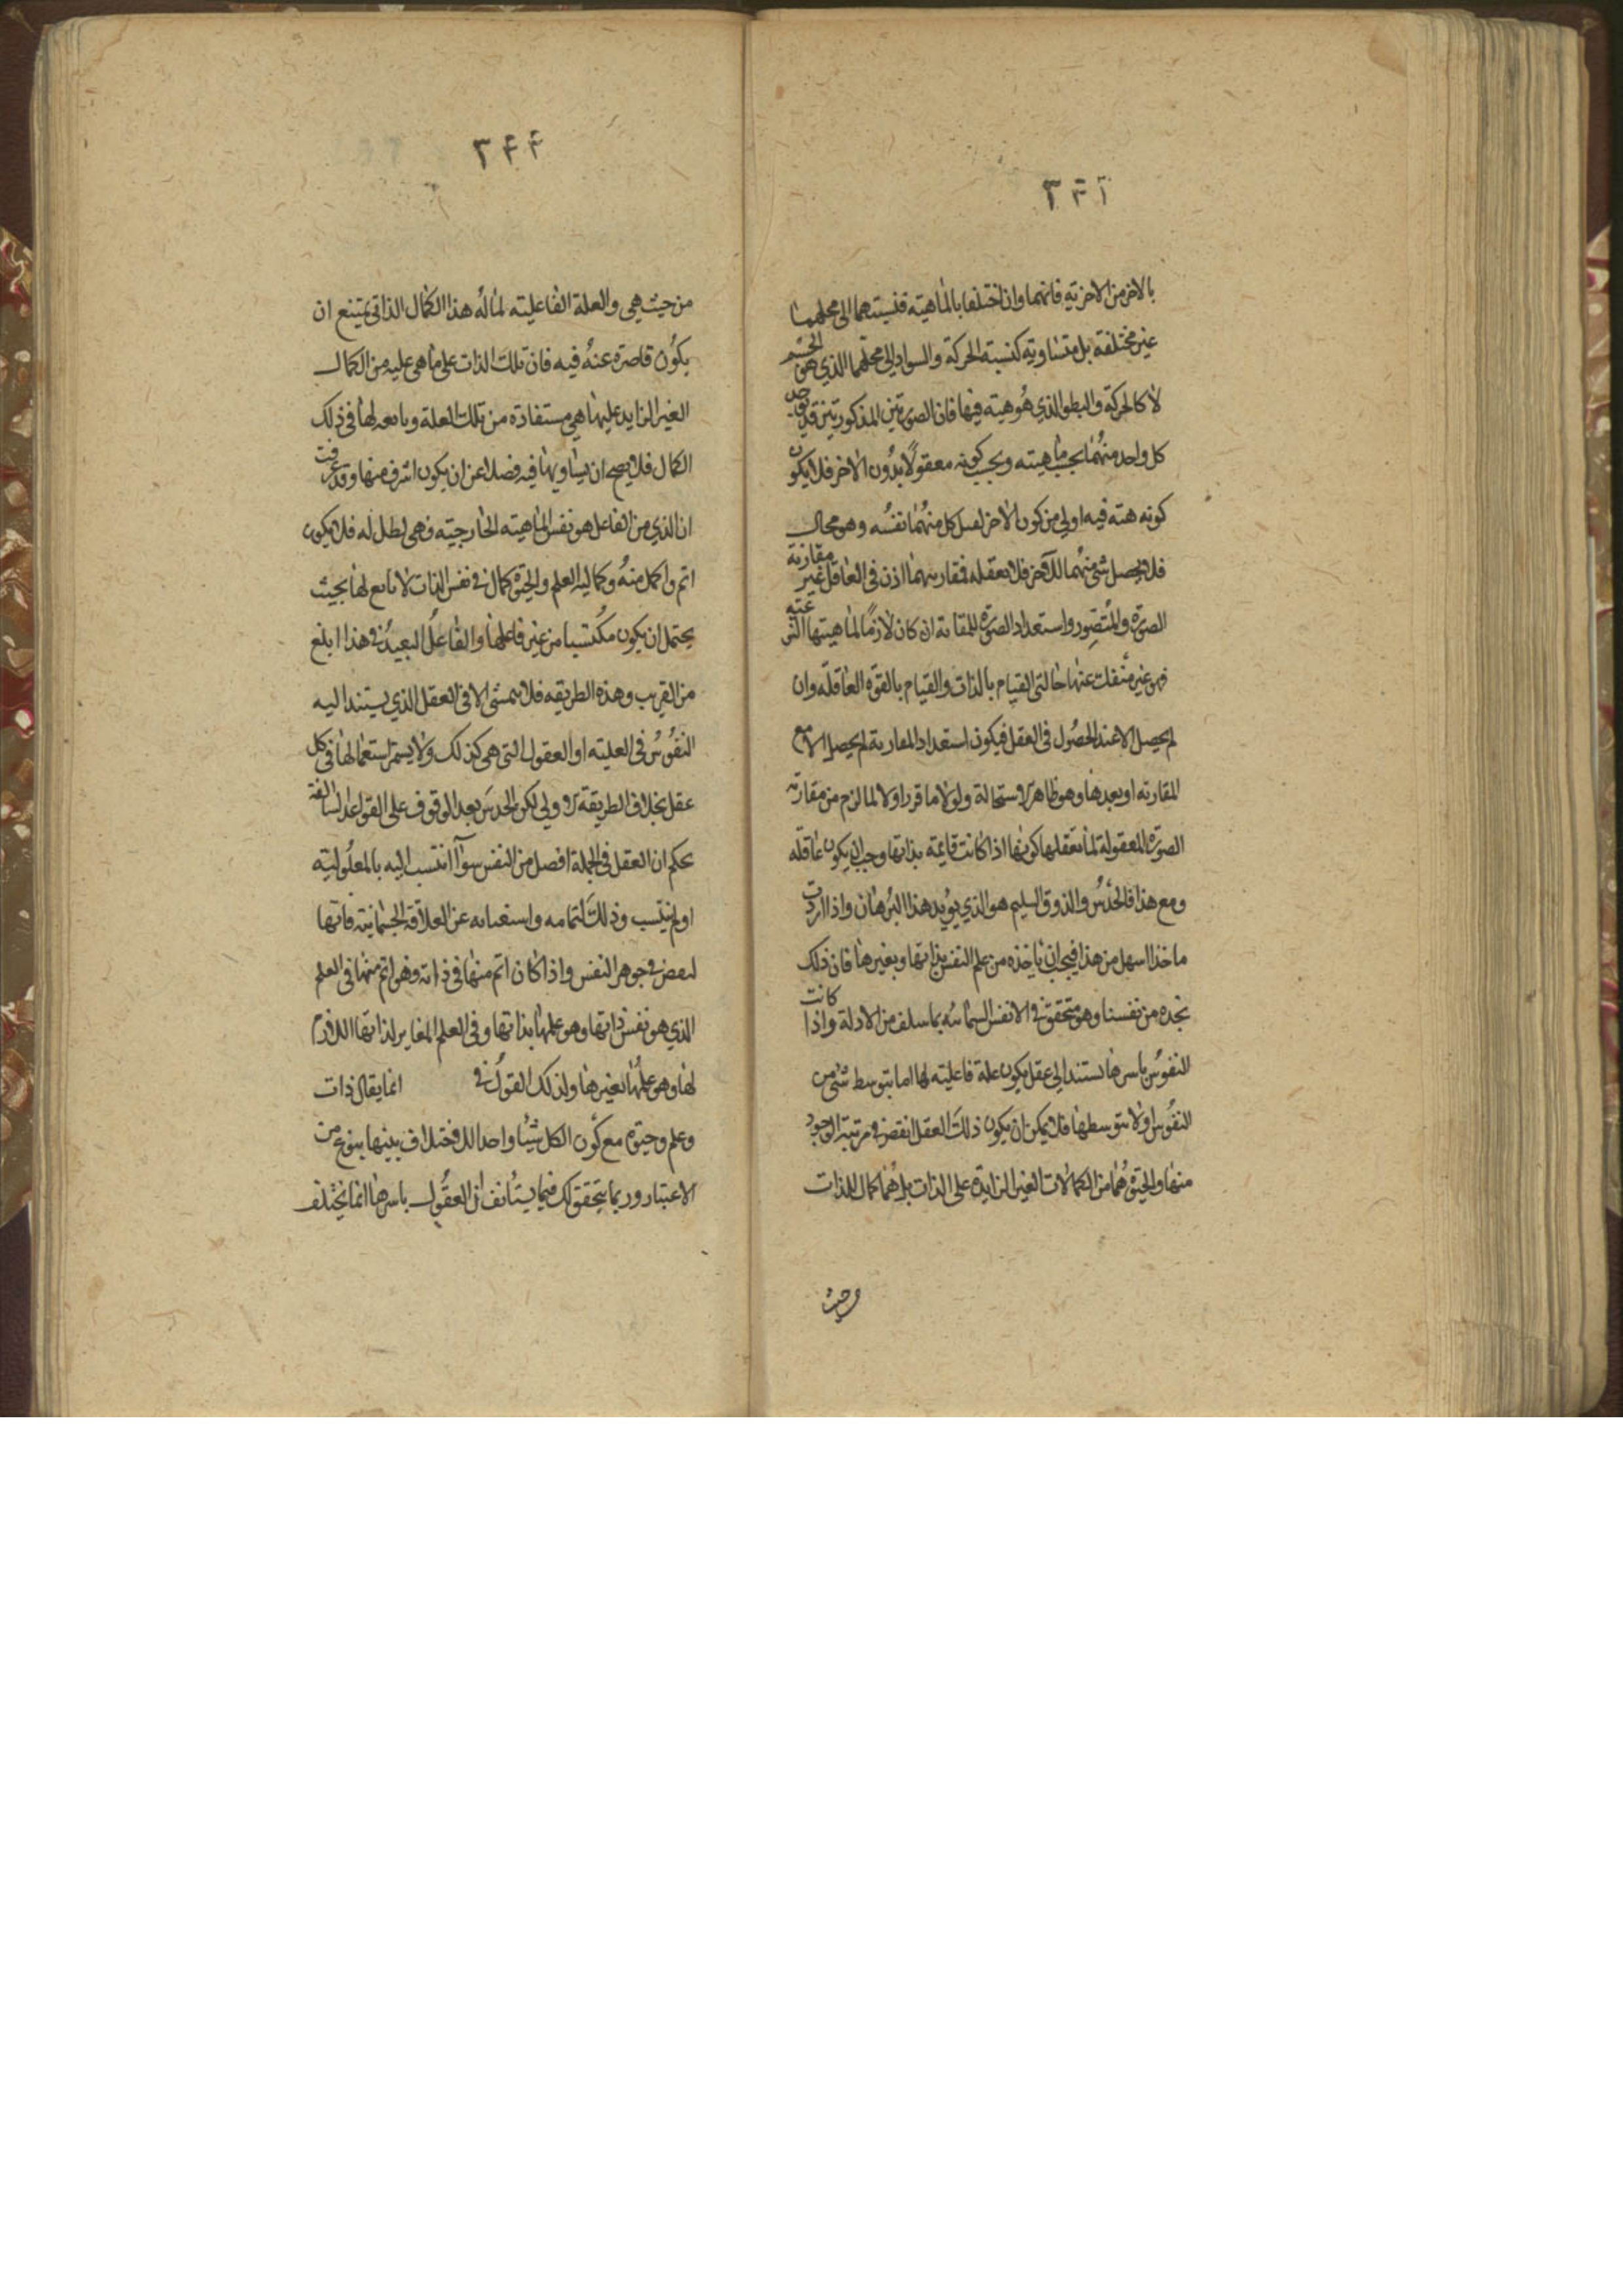 بالاخر من الاخر به فانهما وان اختلفا بالماهية فنسبتهما الى محلهما
غير مختلفة بل متساوية كنسبة الحركة والسواد الى محلهما الذي هو الجسم
لا كالحركة والبطو الذي هو هيئة فيها فان الصورتين المذكورتين قد يوجد
كل واحد منهما بحسب ماهيته وبحسب كونه معقولا بدون الاخر فلا يكون
كونه هيئة فيه اولى من كون الاخر كل منهما نفسه وهو محال
فلا يحصل شي منهما للآخر فلا تعقله فمقارنتهما اذن في العاقل غير مقارنة
الصورة والمتصور واستعداد الصورة للمقارنة ان كان لازما لماهيتها النوعية
فهو غير منفك عنها حالتى القيام بالذات والقيام بالقوة العاقلة وان
لم يحصل الا عند الحصول في العقل فيكون استعداد المقارنة لم يحصل الا مع
المقارنة او بعدها وهو ظاهر الاستحالة ولولا ما قرر اولا لما لزم من مقارنة
الصورة المعقولة لما تعقلها كونها اذا كانت قايمة بذاتها وجب ان يكون عاقلة
ومع هذا فالحدس والذوق السليم هو الذي يؤيد هذا البرهان واذا اردت
ماخذا اسهل من هذا فيجب ان ياخذه من علم النفس بذاتها وبغيرها فان ذلك
نجده من نفسنا وهو متحقق في الانفس السمائية بما سلف من الادلة واذا كانت
النفوس باسرها تستند الى عقل يكون علة فاعلية لها اما بتوسط شئ من
النفوس او لا بتوسطها فلا يمكن ان يكون ذلك العقل انقص في مرتبة الوجود
منها والحيوة هما من الكمالات الغير الزايدة على الذات بل هما كمال للذات
من حيث هي والعلة الفاعلية لما له هذا الكمال الذاتي يمتنع ان
يكون قاصرة عنه فيه فان تلك الذات على ما هي عليه من الكمال
الغير الزايد عليها هي مستفادة من تلك العلة وتابعة لها في ذلك
الكمال فلا يصح ان يساويها فيه فضلا عن ان يكون اشرف منها وقد عرفت
ان الذي من الفاعل هو نفس الماهية الخارجية فهى له فلا يكون
اتم واكمل منه وكمالية العلم والحيوة كمال في نفس الذات لا تابع لها بحيث
يحتمل ان يكون مكتسبا من غير فاعلها والفاعل البعيد في هذا ابلغ
من القريب وهذه الطريقه فلا تتمشى الا في العقل الذي يستند اليه
النفوس في العلية او العقول التي هي كذلك ولا يستمر استعمالها في كل
عقل بخلاف الطريقة الاولى لكن الحدس بعد الوقوف على القواعد السالفة
يحكم ان العقل في الجملة افضل من النفس سوآ انتسب اليه بالمعلولية
او لم ينتسب وذلك لتمامه واستغنائه عن العلاقة الجسمانية فانها
لنقص في جوهر النفس واذا كان اتم منها في ذاته وهو اتم منها في العلم
الذي هو نفس ذاتها وهو علمها بذاتها وفي العلم المغاير لذاتها اللازم
لها وهو علمها بغيرها ولذلك القول في انما يقال ذات
وعلم وحيوة مع كون الكل شيئا واحدا للاختلاف بينها بنوع من
الاعتبار وربما يتحقق لك فيما يستأنف ان العقول باسرها انما يختلف